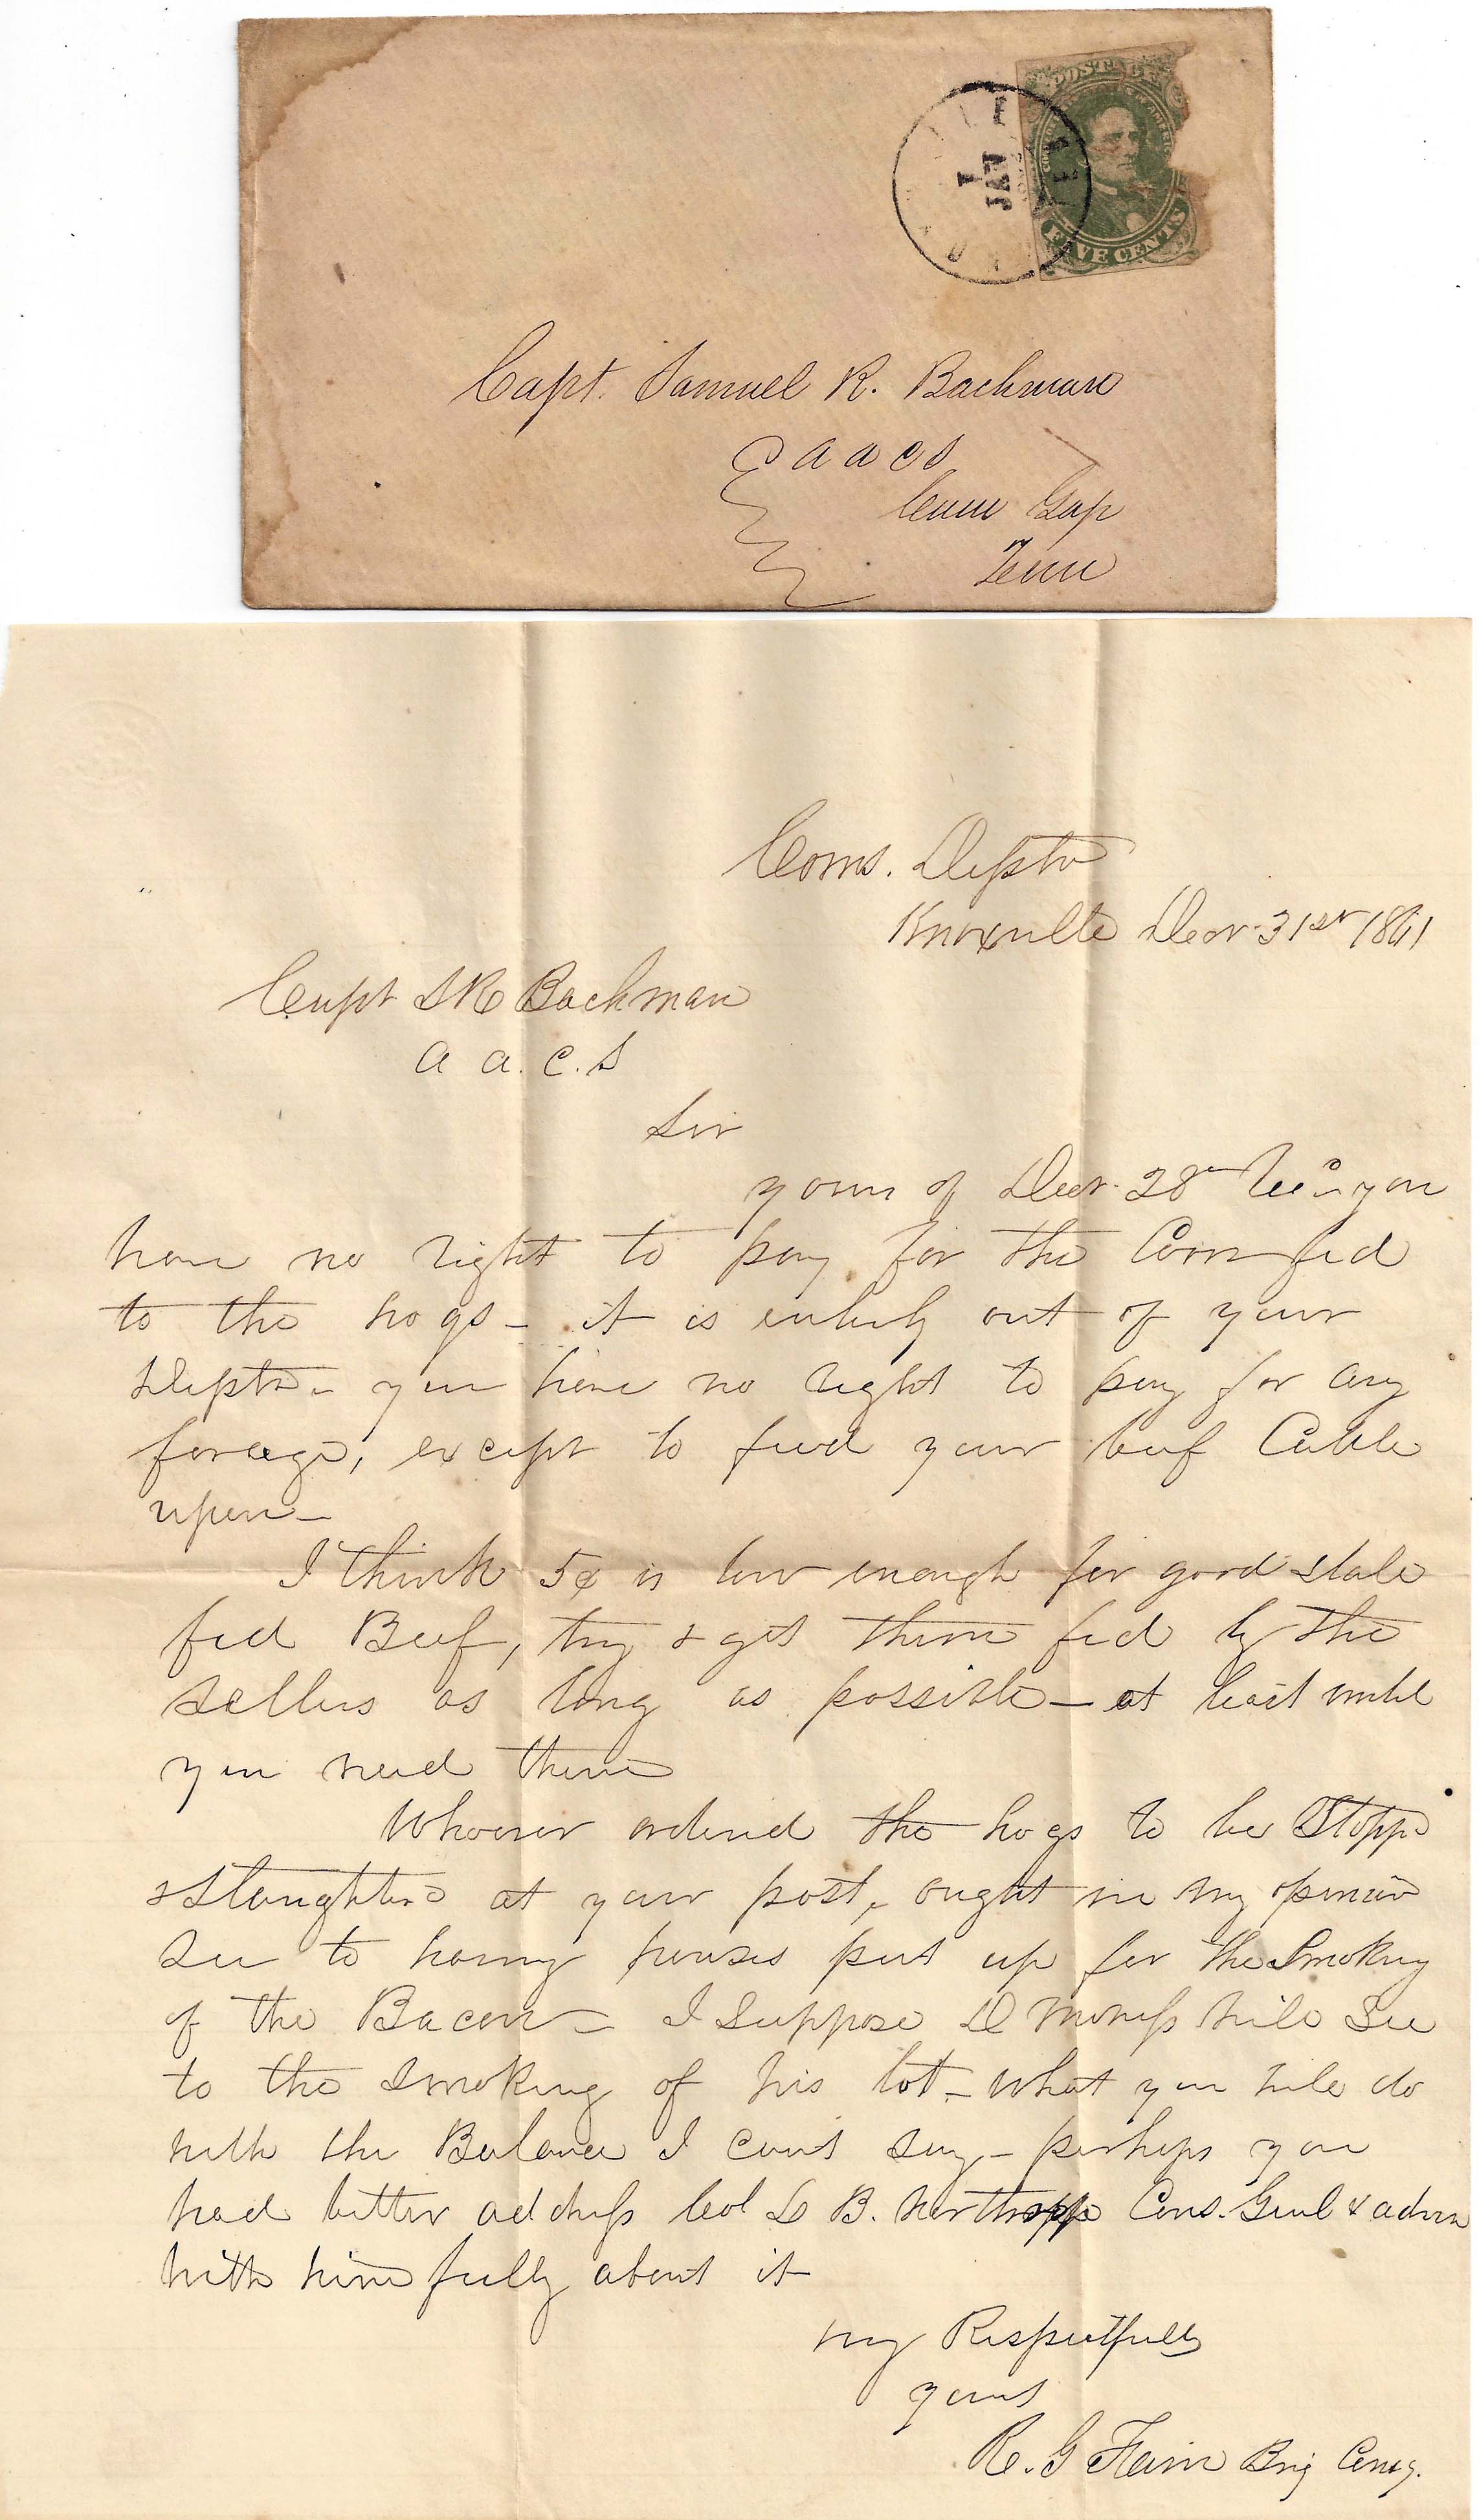 POSTAGE
FIVE CENTS
1
JAN
TEN
Capt. Samuel R. Bachman
A A C S
Cum Gap
Tenn
Coms. Dept
Knoxville Decr. 31st 1861
Capt S R Bachman
A A. C. S
Sir
yours of Decr. 28th Recd. you
have no right to pay for the Corn fed
to the hogs - it is entirely out of your
Dept - you have no right to pay for any
forage, except to feed your beef Cattle
upon -
I think 5¢ is low enough for good stall
fed Beef, try & get them fed by the
sellers as long as possible - at least until
you need them
Whoever ordered the hogs to be Stoppd
& Slaughterd at your post, ought in my opinion
see to having houses put up for the Smoking
of the Bacon - I suppose will See
to the Smoking of his lot - what you will do
with the Balance I cant say - perhaps you
had better address Col L B. Northrop Coms. Genl & advise
with him fully about it
Very Respectfully
yours
R. G Fain Brig Comsy.